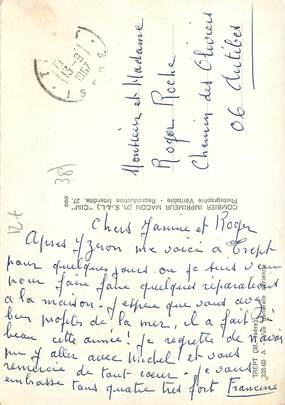 Monsieur et Madame
Roger Roche
Chemin des Oliviers
06 Antibes
COMBIER IMPRIMEUR MACON (71. S.-&-L.) "CIM"
Photographie Véritable - Reproduction Interdite, 27. 000
38f
Chers Janine et Roger
Après Yzeron me voici à Trept
pour quelques jours où je suis venue
pour faire faire quelques réparations
à la maison. J'espère que vous avez
bien profités de la mer, il a fait si
beau cette année! Je regrette de n'avoir
pu y aller avec Michel et vous
remercie de tout coeur. Je vous
embrasse tous quatre très fort Francine
TREPT (38 - Isère)